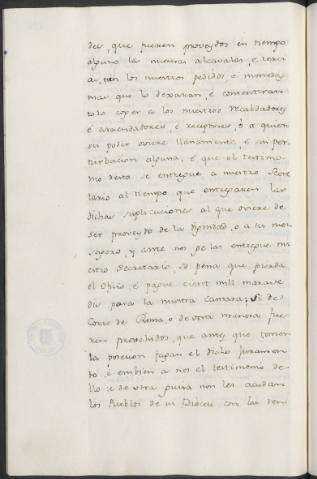 des, que fueren proveydos en tiempo
alguno las nuestras alcavalas, e terci
as, nin los nuestros pedidos, e monedas
mas que lo dexaran, e consentiran
todo coger a los nuestros Recabdadores
e arrendadores, e receptores, o a quien
su poder oviere llanamente, e sin per
turbacion alguna, e que el testimo
nio desto se entregue a nuestro Secre
tario al tiempo que entregaren las
dichas suplicaciones al que oviere de
ser proveydo de la dignidad, o a su men
sagero, y antes nos de las entregue nu
estro Secretario, so pena que pierda
el Oficio, e pague cient mill marave
dis para la nuestra Camara; si de
Corte de Roma, o de otra manera fue
ren proveidos, que antes que tomen
la posesion fagan el dicho juramen
to, e embien a nos el testimonio de
llo e de otra guisa non les acudan
los Pueblos de su Diocesi con las ren